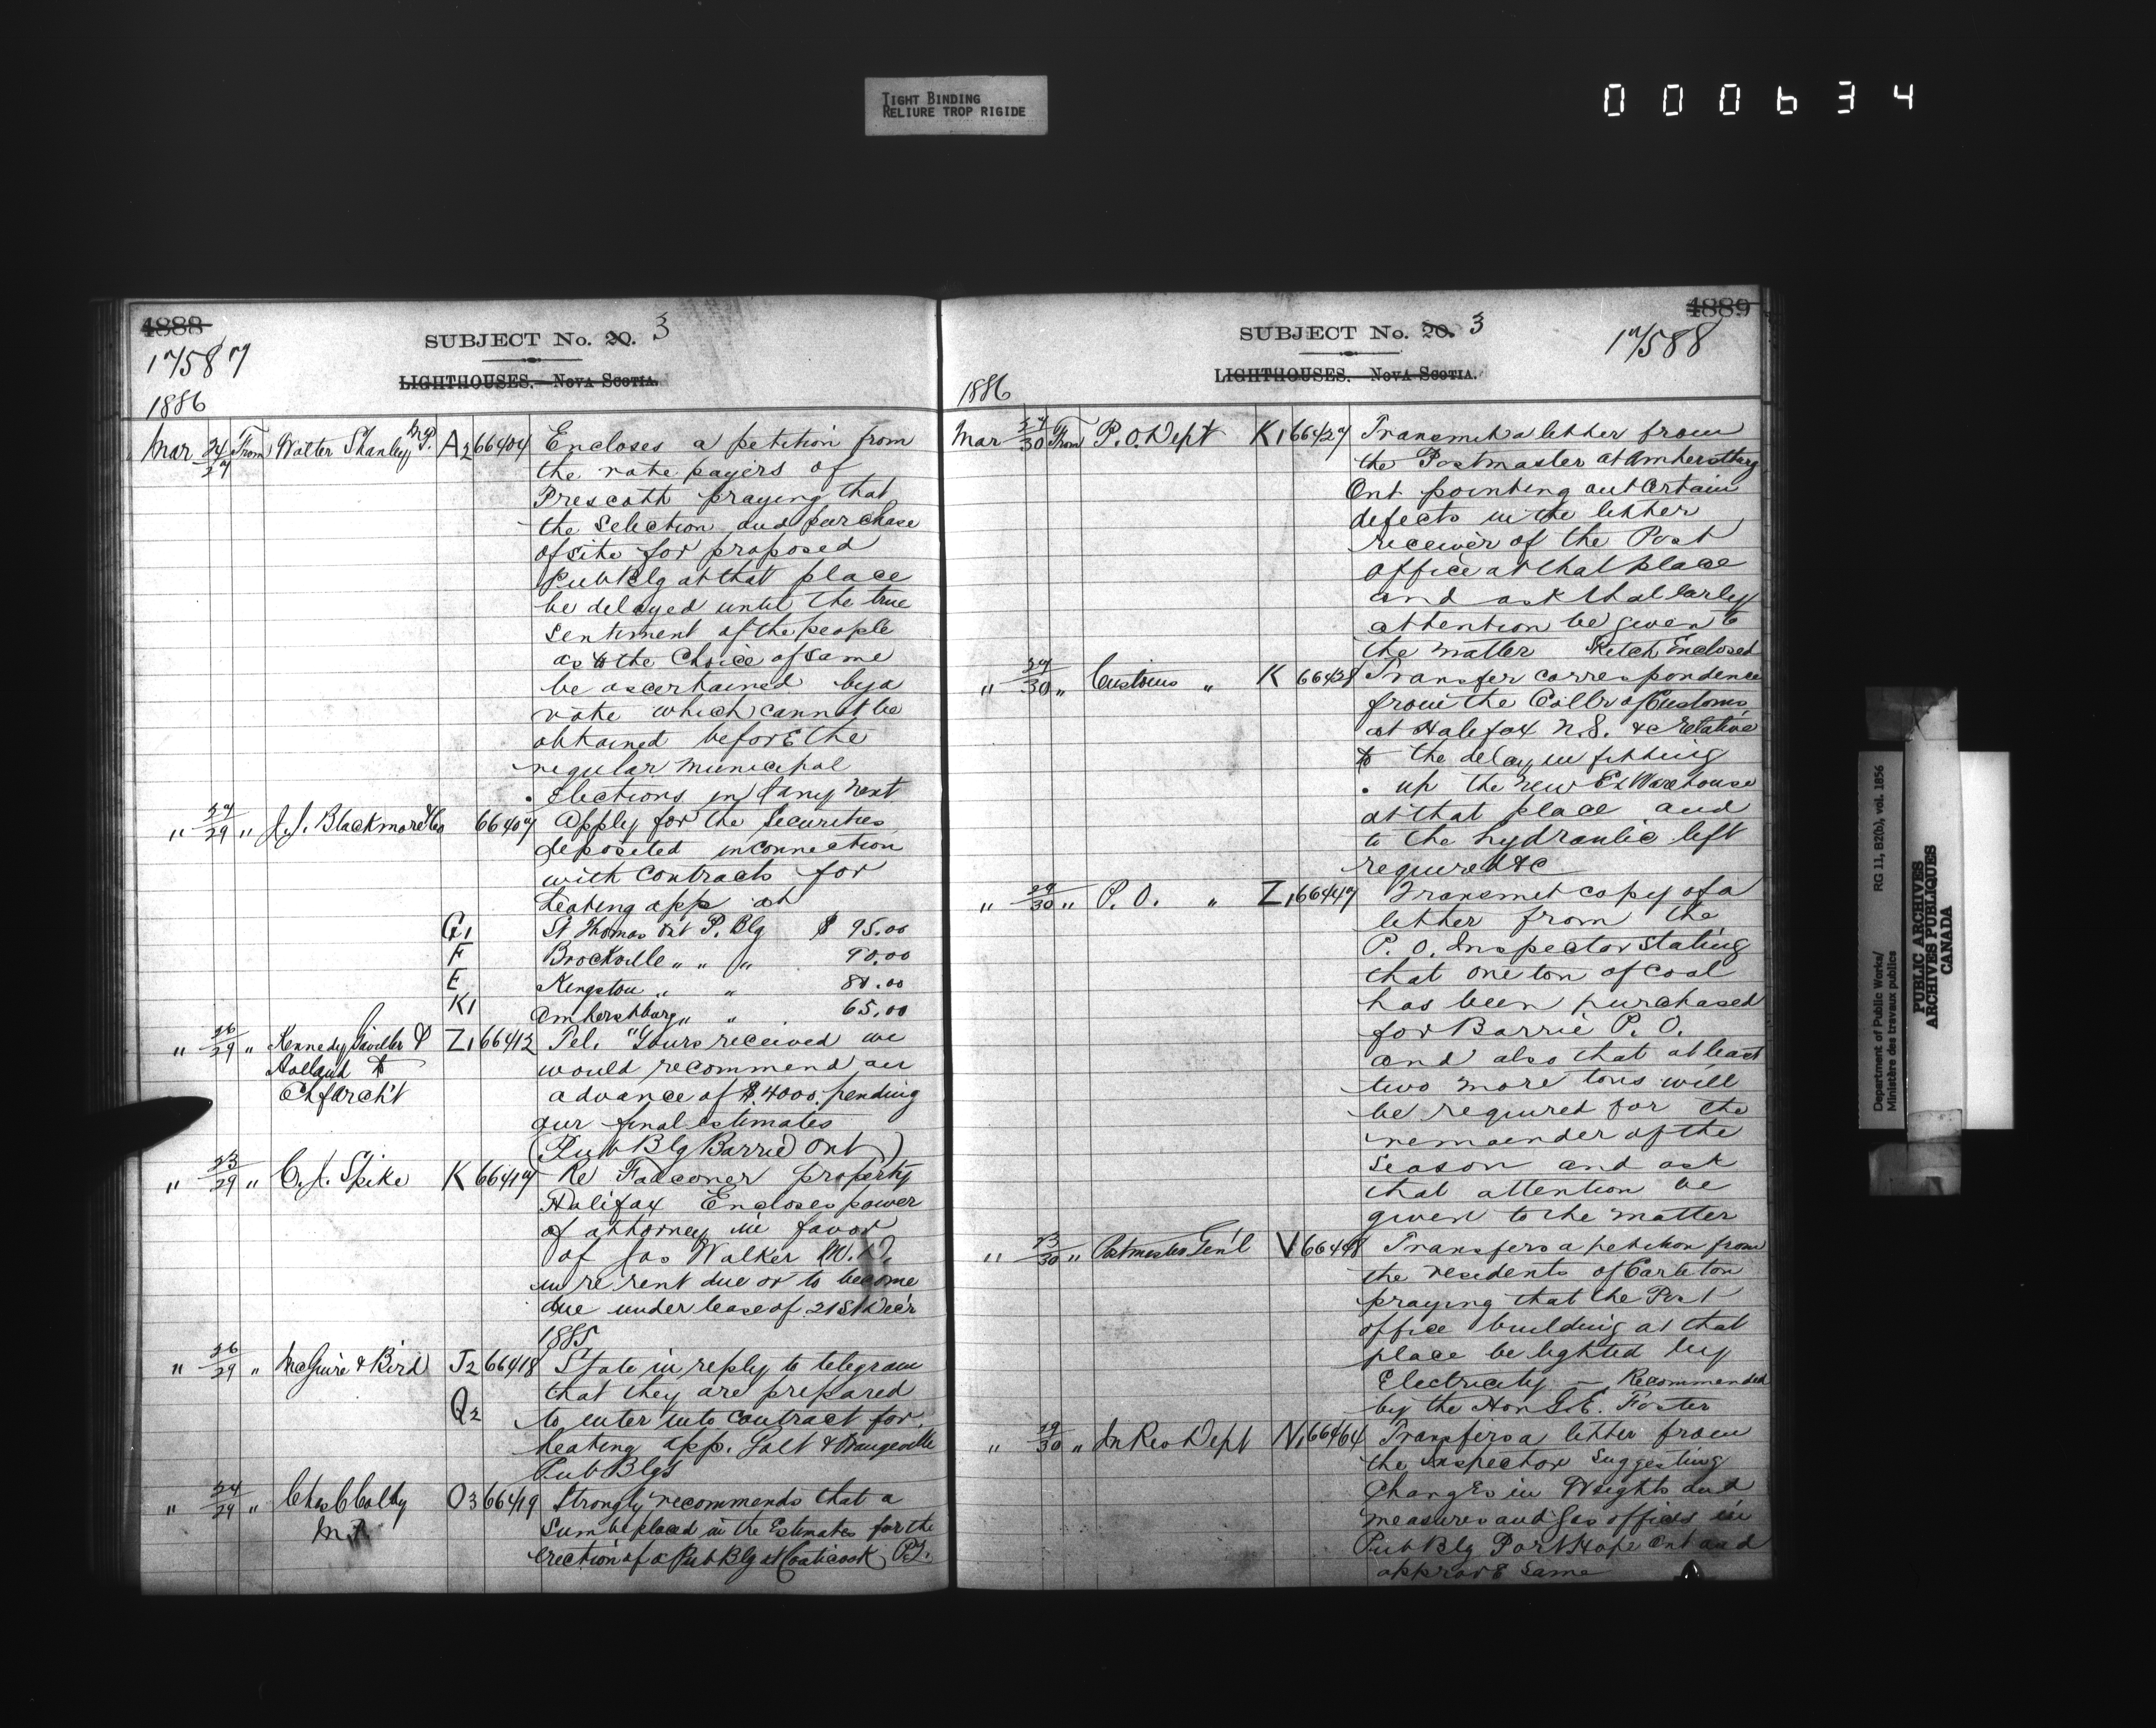 TIGHT BINDING
RELIURE TROP RIGIDE
000634
4888
17587
SUBJECT No. 20. 3
LIGHTHOUSES. NOVA SCOTIA.
1886
Mar 24/27 From Walter Shanley MP. A2 66404 Encloses a petition from
the rate payers of
Prescott praying that
the Selection and purchase
of site for proposed
Pub Blg at that place
be delayed until the true
Sentiment of the people
as to the Choice of same
be ascertained by a
vote which cannot be
obtained before the
regular Municipal
Elections in Jany next
" 27/29 " J.J. Blackmore & Co 66407 Apply for the Securities
deposited in connection
with contracts for
heating app at
G1 St Thomas Ont P. Blg $ 95.00
F Brockville " " " 90.00
E Kingston " " 80.00
K1 Amherstburg " " 65.00
" 26/29 " Kennedy Gaviller & Z1 66412 Tel. "Yours received we
Holland to would recommend an
Ch farch't advance of $4000. pending
our final estimates
(Pub Blg Barrie Ont)
" 23/29 " C. J. Spike K 66417 Re Falconer property
Halifax Encloses power
of attorney in favor
of Jas Walker M.D.
in re rent due or to become
due under lease of 21st Dec'r
1885
" 26/29 " McGuire & Bird J2 66418 State in reply to telegram
that they are prepared
Q2 to enter into contract for
heating app. Galt & Orangeville
Pub Blgs
" 24/29 " Chas C Colby O3 66419 Strongly recommends that a
M.P. Sum be placed in the Estimates for the
erection of a Pub Blg at Coaticook P.Q.
4889
17588
SUBJECT No. 20. 3
LIGHTHOUSES. NOVA SCOTIA.
1886
Mar 27/30 From P.O. Dept K1 66427 Transmit a letter from
the Postmaster at Amherstburg
Ont pointing out Certain
defects in the letter
receiver of the Post
Office at that place
and ask that early
attention be given to
the matter Sketch Enclosed
" 27/30 " Customs " K 66428 Transfer correspondence
from the Collr of Customs
at Halifax N.S. &c relative
to the delay in fitting
up the new Ex Warehouse
at that place and
to the hydraulic lift
required &c
" 29/30 " P. O. " Z1 66447 Transmit copy of a
letter from the
P. O. Inspector stating
that one ton of coal
has been purchased
for Barrie P. O.
and also that at least
two more tons will
be required for the
remainder of the
Season and ask
that attention be
given to the matter
" 23/30 " Postmaster Gen'l V 66448 Transfers a petition from
the residents of Carleton
praying that the Post
office building at that
place be lighted by
Electricity — Recommended
by the Hon G.E. Foster
" 29/30 " In Rev Dept N1 66464 Transfers a letter from
the Inspector Suggesting
Changes in Weights and
measures and Gas offices in
Pub Blg Port Hope Ont and
approve Same
Department of Public Works/
Ministère des travaux publics
RG 11, B2(b), vol. 1856
PUBLIC ARCHIVES
ARCHIVES PUBLIQUES
CANADA